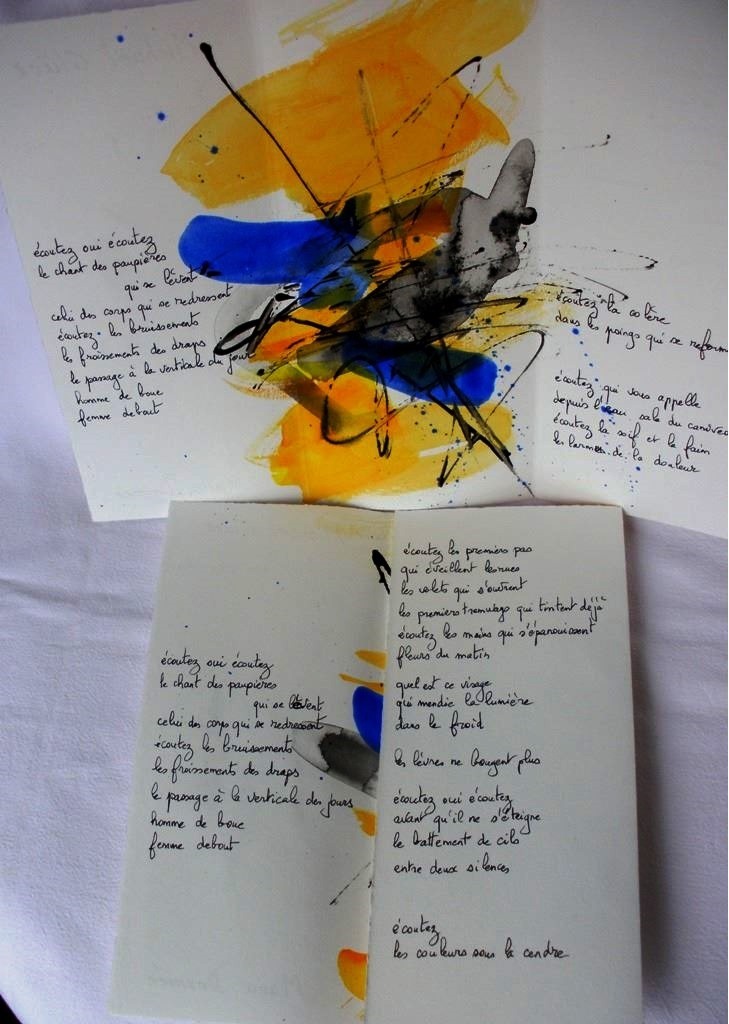 écoutez oui écoutez
le chant des paupières
qui se lèvent
celui des corps qui se redressent
écoutez les bruissements
les froissements des draps
le passage à la verticale du jour
homme de boue
femme debout
écoutez la colère
dans les poings qui se reform
écoutez qui vous appelle
depuis l'eau sale du caniveau
écoutez la soif et la faim
les larmes de la douleur
écoutez oui écoutez
le chant des paupières
qui se lèvent
celui des corps qui se redressent
écoutez les bruissements
les froissements des draps
le passage à la verticale des jours
homme de boue
femme debout
écoutez les premiers pas
qui éveillent les rues
les volets qui s'ouvrent
les premiers tramways qui tintent déjà
écoutez les mains qui s'épanouissent
fleurs du matin
quel est ce visage
qui mendie la lumière
dans le froid
les lèvres ne bougent plus
écoutez oui écoutez
avant qu'il ne s'éteigne
le battement de cils
entre deux silences
écoutez
les couleurs sous la cendre